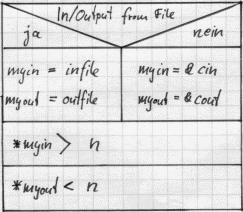 In/Output from File
ja
nein
myin = infile
myout = outfile
myin = & cin
myout = & cout
*myin > n
*myout < n